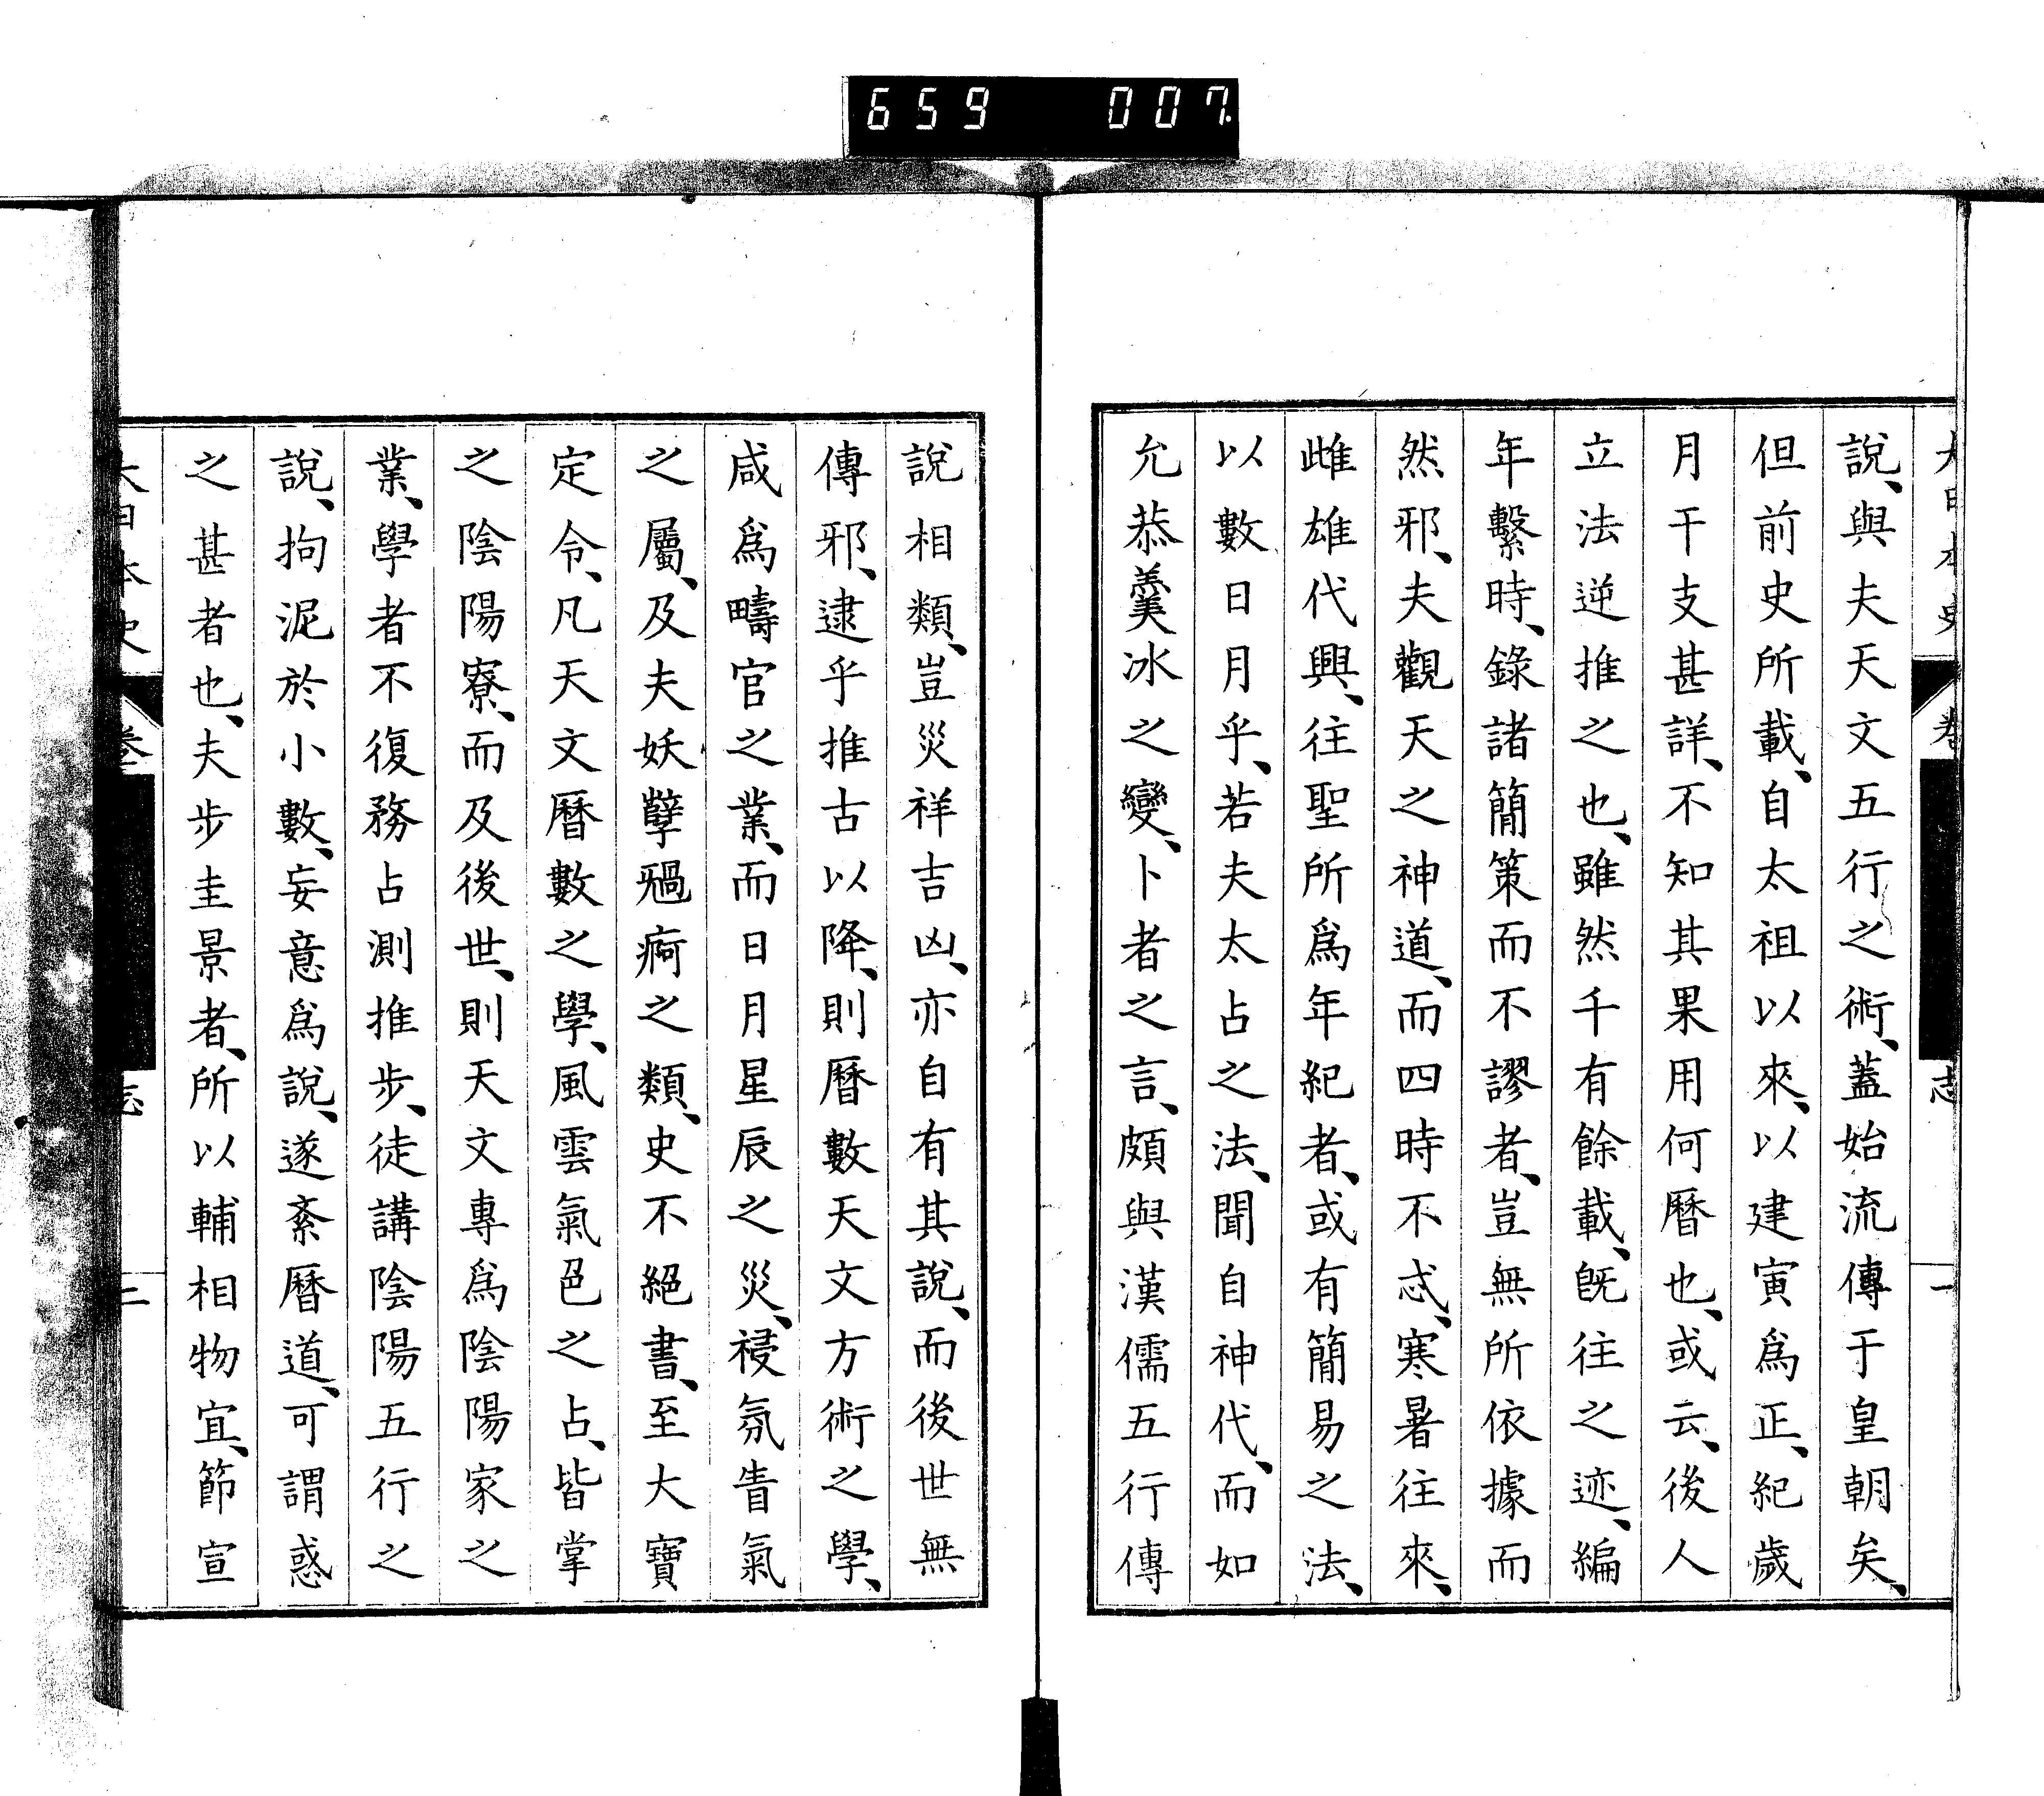 659 007.
大日本史 卷 志 一
說、與夫天文五行之術、蓋始流傳于皇朝矣、
但前史所載、自太祖以來、以建寅爲正、紀歲
月干支甚詳、不知其果用何曆也、或云、後人
立法逆推之也、雖然千有餘載、旣往之迹、編
年繫時、錄諸簡策而不謬者、豈無所依據而
然邪、夫觀天之神道、而四時不忒、寒暑往來、
雌雄代興、往聖所爲年紀者、或有簡易之法、
以數日月乎、若夫太占之法、聞自神代、而如
允恭羹冰之變、卜者之言、頗與漢儒五行傳
說相類、豈災祥吉凶、亦自有其說、而後世無
傳邪、逮乎推古以降、則曆數天文方術之學、
咸爲疇官之業、而日月星辰之災、祲氛眚氣
之屬、及夫妖孽禍痾之類、史不絕書、至大寶
定令、凡天文曆數之學、風雲氣色之占、皆掌
之陰陽寮、而及後世、則天文專爲陰陽家之
業、學者不復務占測推步、徒講陰陽五行之
說、拘泥於小數、妄意爲說、遂紊曆道、可謂惑
之甚者也、夫步圭景者、所以輔相物宜、節宣
大日本史 卷 志 二